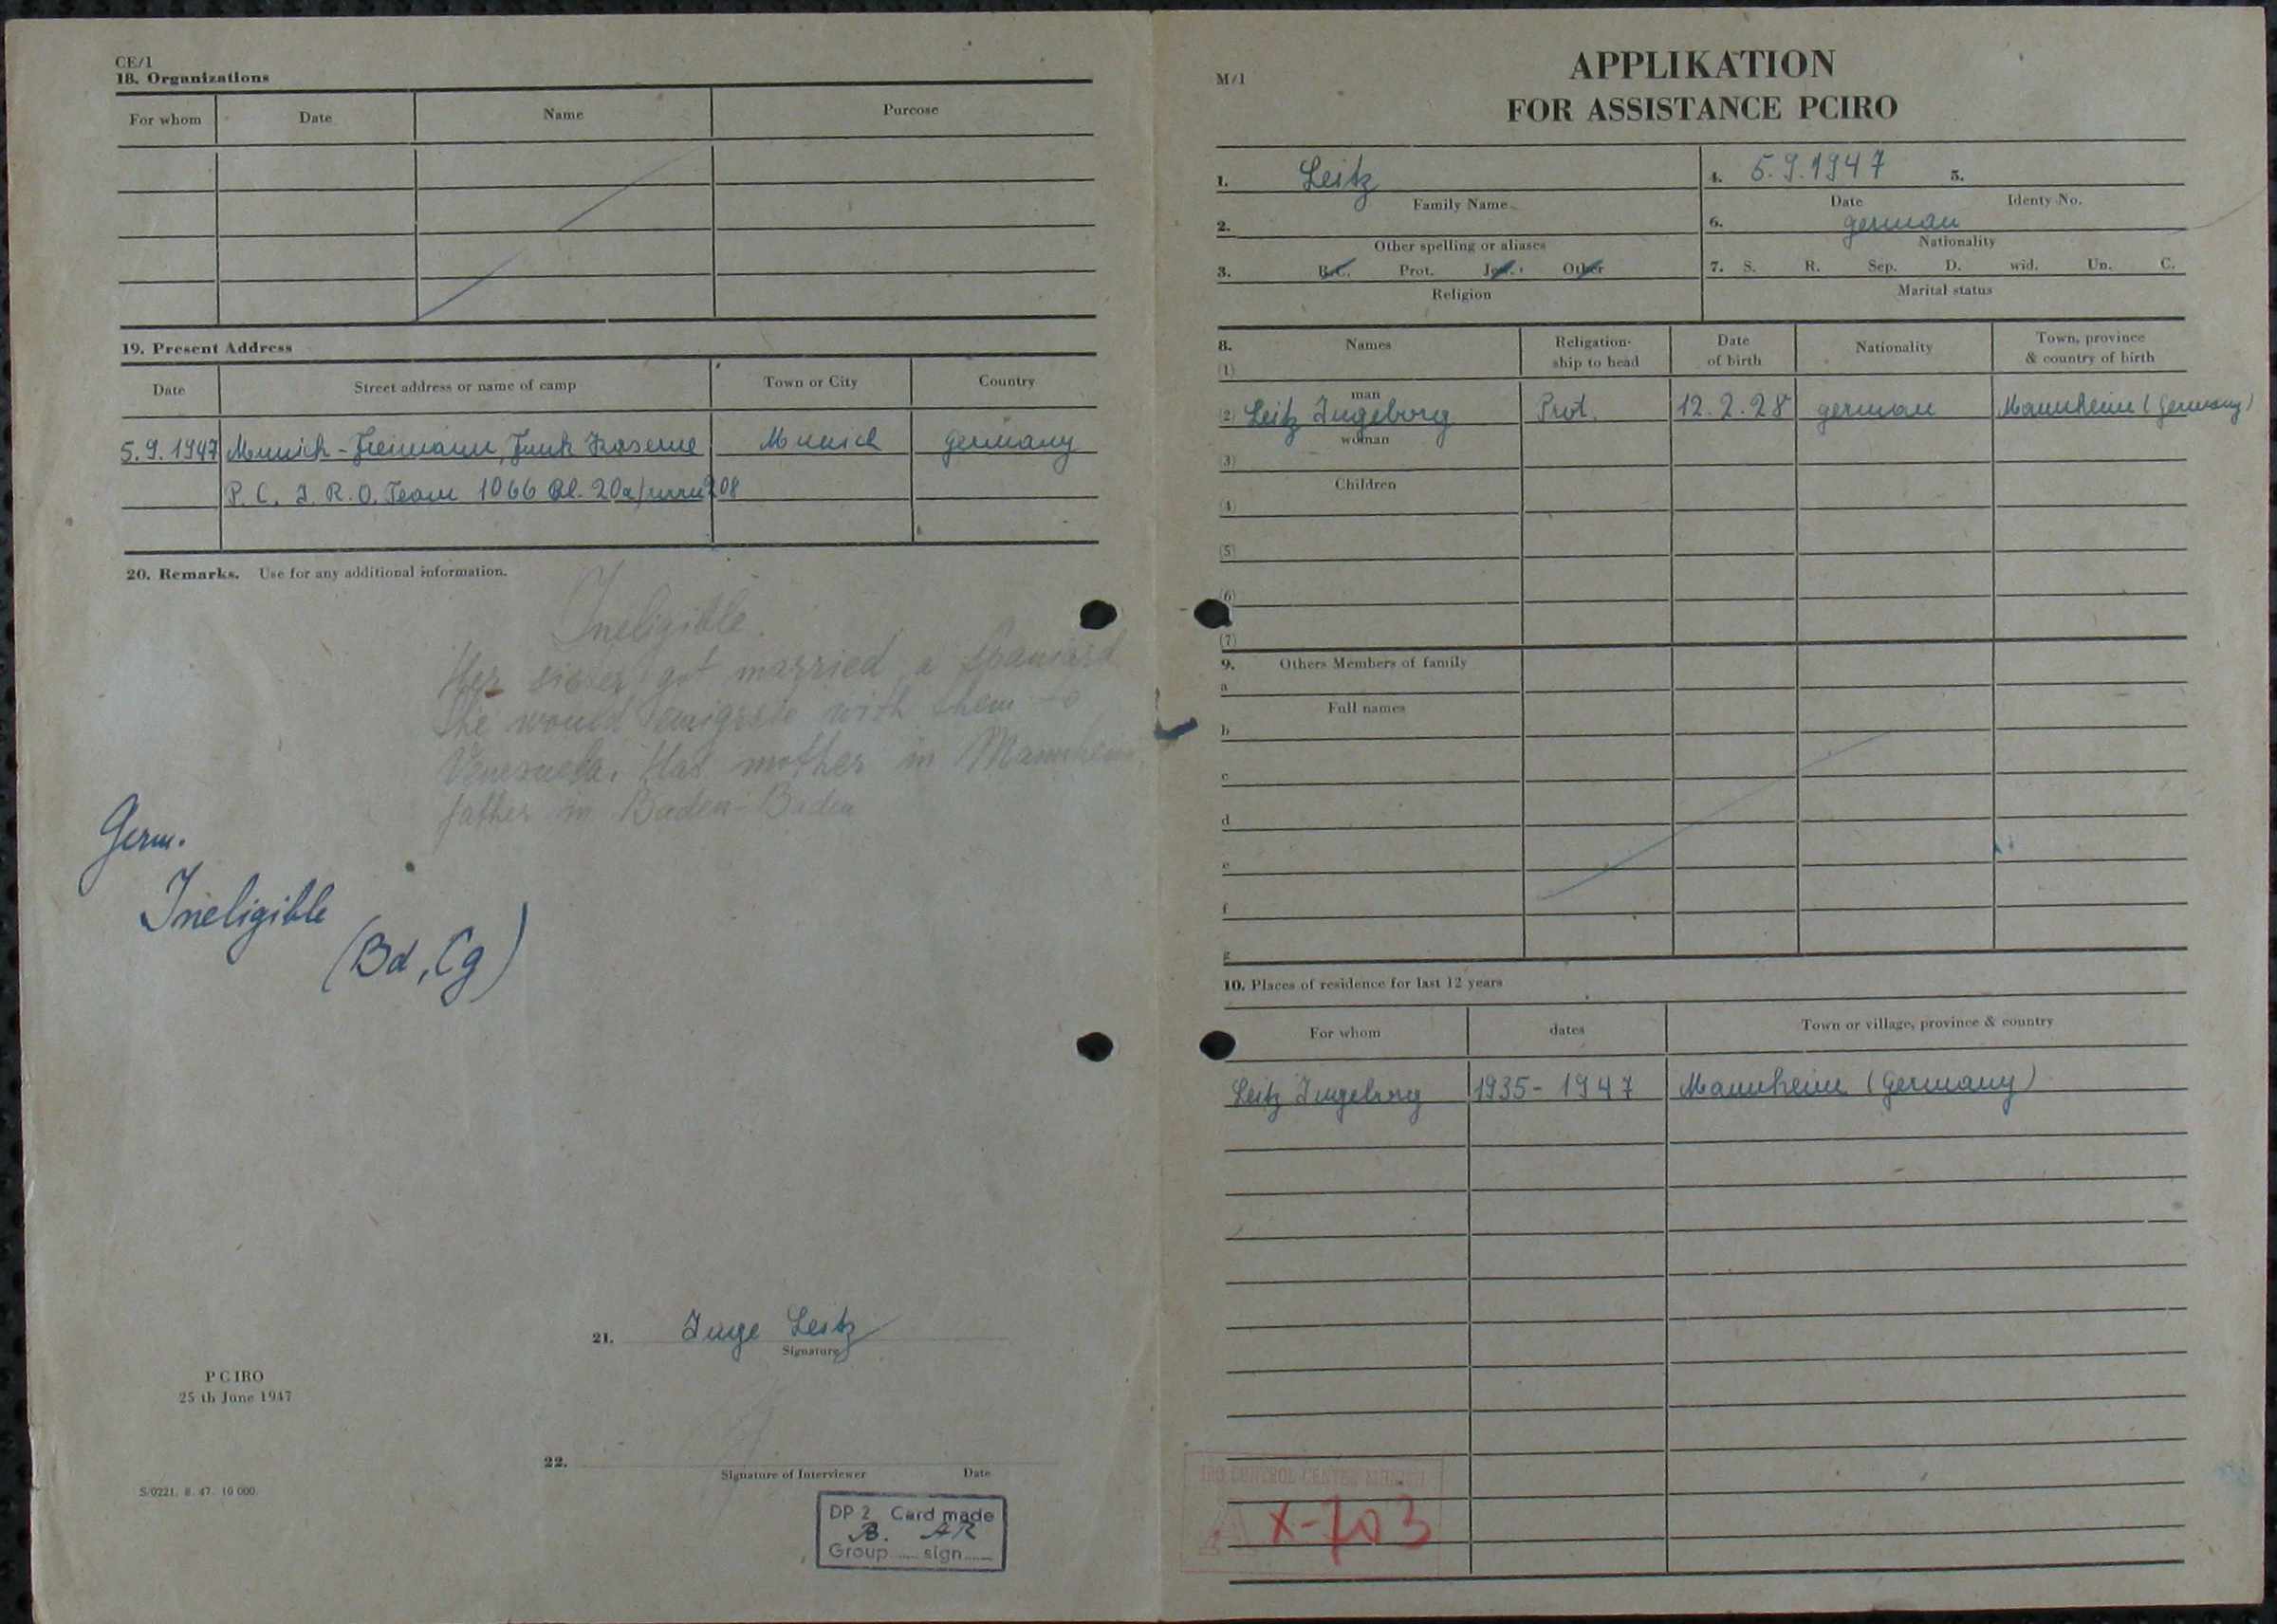 CE/1
18. Organizations
For whom Date Name Purcose
19. Present Address
Date Street address or name of camp Town or City Country
5.9.1947 Munich-Freimann, Funk Kaserne Munich Germany
P.C. I.R.O. Team 1066 Bl. 20a/ 208
20. Remarks. Use for any additional information.
Ineligible.
Her sister got married a Spaniard
She would emigrate with them to
Venezuela. Has mother in Mannheim,
father in Baden-Baden
Germ.
Ineligible
(Bd, Cg)
21. Inge Leitz
Signature
PCIRO
25 th June 1947
22.
Signature of Interviewer Date
S/0221. 8. 47. 10 000.
DP 2 Card made
B. AR
Group sign
M/1
APPLIKATION
FOR ASSISTANCE PCIRO
1. Leitz 4. 5.9.1947 5.
Family Name Date Identy No.
2. 6. german
Other spelling or aliases Nationality
3. R.C. Prot. Jew. Other 7. S. R. Sep. D. wid. Un. C.
Religion Marital status
8. Names Religation- Date Nationality Town, province
(1) ship to head of birth & country of birth
man
(2) Leitz Ingeborg Prot. 12.2.28 german Mannheim (Germany)
woman
(3)
Children
(4)
(5)
(6)
(7)
9. Others Members of family
a
Full names
b
c
d
e
f
g
10. Places of residence for last 12 years
For whom dates Town or village, province & country
Leitz Ingeborg 1935-1947 Mannheim (Germany)
IRO CONTROL CENTER MUNICH
X-703